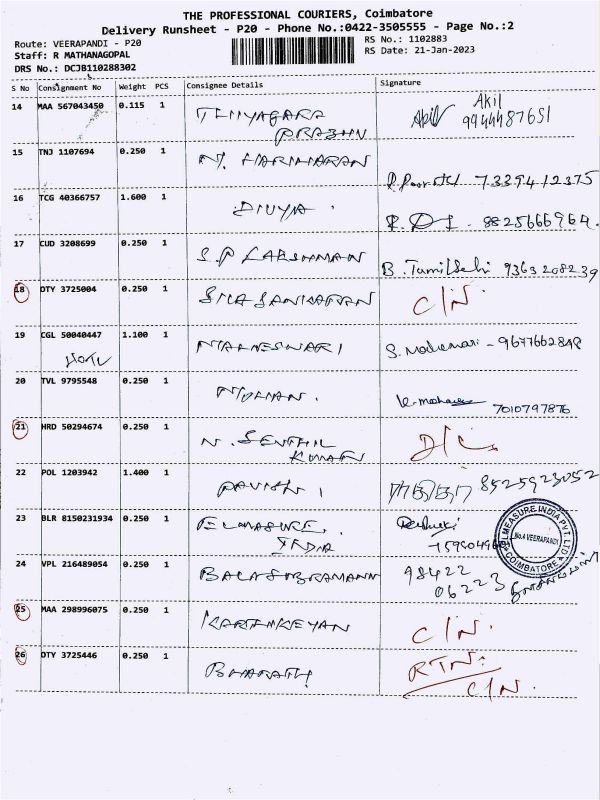 THE PROFESSIONAL COURIERS, Coimbatore
Delivery Runsheet - P20 - Phone No.:0422-3505555 - Page No.:2
Route: VEERAPANDI - P20
RS No.: 1102883
Staff: R MATHANAGOPAL
RS Date: 21-Jan-2023
DRS No.: DCJB110288302
S No Consignment No Weight PCS Consignee Details Signature
14 MAA 567043450 0.115 1 THIYAGARA Akil
PRABHU 9944487651
15 TNJ 1107694 0.250 1 N. HARIHARAN
7339412375
16 TCG 40366757 1.600 1 DIVYA . 8825666964.
17 CUD 3208699 0.250 1 S.P LAKSHMAN B. TamilSelvi 9363208239
18 DTY 3725004 0.250 1 SIVASANKARAN C/N.
19 CGL 50040447 1.100 1 MAHESWARI S. Maheswari - 9677662848
20 TVL 9795548 0.250 1 MOHAN. 7010797876
21 HRD 50294674 0.250 1 N. SENTHIL D/C.
KUMAR
22 POL 1203942 1.400 1 PAVISH 8525923052
23 BLR 8150231934 0.250 1 ELMEASURE,
INDIA
ELMEASURE INDIA PVT. LTD
No.4 VEERAPANDI
COIMBATORE
24 VPL 216489054 0.250 1 BALASUBRAMANN 98422
06223
25 MAA 298996075 0.250 1 KARTHIKEYAN C/N.
26 DTY 3725446 0.250 1 BHARATH RTN:
C/N.